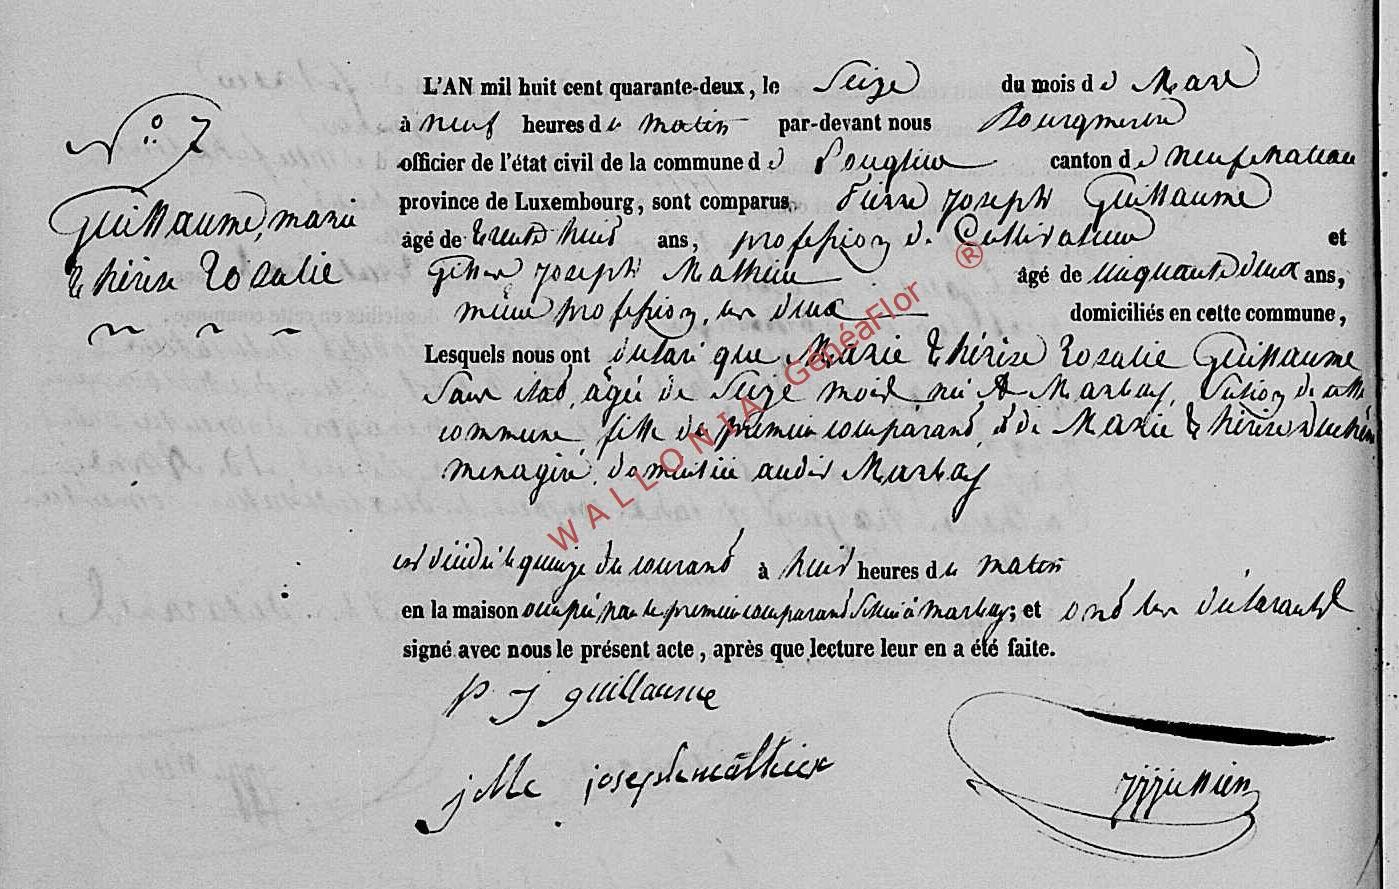 N.° 7
Guillaume, marie
thérèse Rosalie
L'AN mil huit cent quarante-deux, le Seize du mois de Mars
à neuf heures du matin par-devant nous Bourgmestre
officier de l'état civil de la commune de canton de neufchateau
province de Luxembourg, sont comparus Pierre joseph Guillaume
âgé de trente huit ans, profession de Cultivateur et
joseph Mathieu âgé de cinquante deux ans,
même profession, les deux domiciliés en cette commune,
Lesquels nous ont déclaré que Marie thérèse Rosalie Guillaume
Sans état, agée de Seize mois née à Marbay, Section de cette
commune, fille du premier comparant, et de Marie thérèse
menagère, domiciliée audit Marbay
est décédée le quinze du courant à huit heures du matin
en la maison occupée par le premier comparant située à marbay; et ont les déclarants
signé avec nous le présent acte, après que lecture leur en a été faite.
p j guillaume
joseph mathieu
WALLONIA GénéaFlor ®